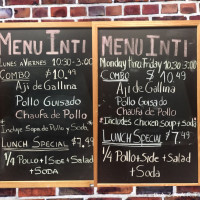 MENU INTI
LUNES A VIERNES 10:30-3:00
COMBO $10.99
Aji de Gallina
Pollo Guisado
Chaufa de Pollo
*Incluye Sopa de Pollo y Soda*
LUNCH SPECIAL $7.49
1/4 Pollo + 1 Side + Salad
+ SODA
MENU INTI
Monday thru Friday 10:30-3:00
COMBO $10.49
Aji de Gallina
Pollo Guisado
Chaufa de Pollo
*Includes chicken soup + soda
LUNCH SPECIAL $7.49
1/4 Pollo + Side + Salad
+ Soda